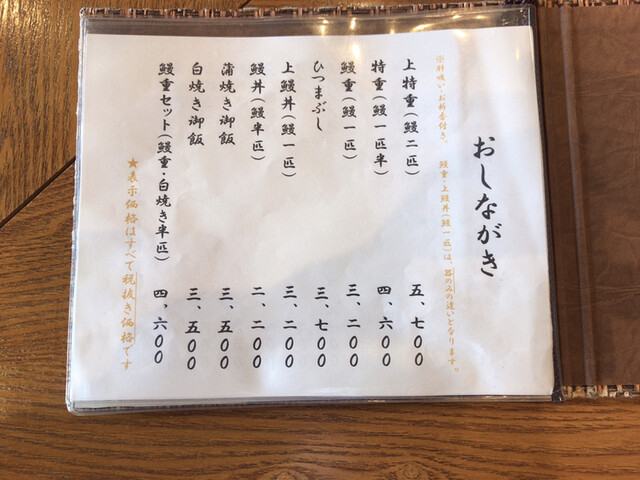 おしながき
※肝吸い・お新香付き。 鰻重・上鰻丼(鰻一匹)は、器のみの違いとなります。
上特重(鰻二匹) 五、七〇〇
特重(鰻一匹半) 四、六〇〇
鰻重(鰻一匹) 三、二〇〇
ひつまぶし 三、七〇〇
上鰻丼(鰻一匹) 三、二〇〇
鰻丼(鰻半匹) 二、二〇〇
蒲焼き御飯 三、五〇〇
白焼き御飯 三、五〇〇
鰻重セット(鰻重・白焼き半匹) 四、六〇〇
★表示価格はすべて税抜き価格です